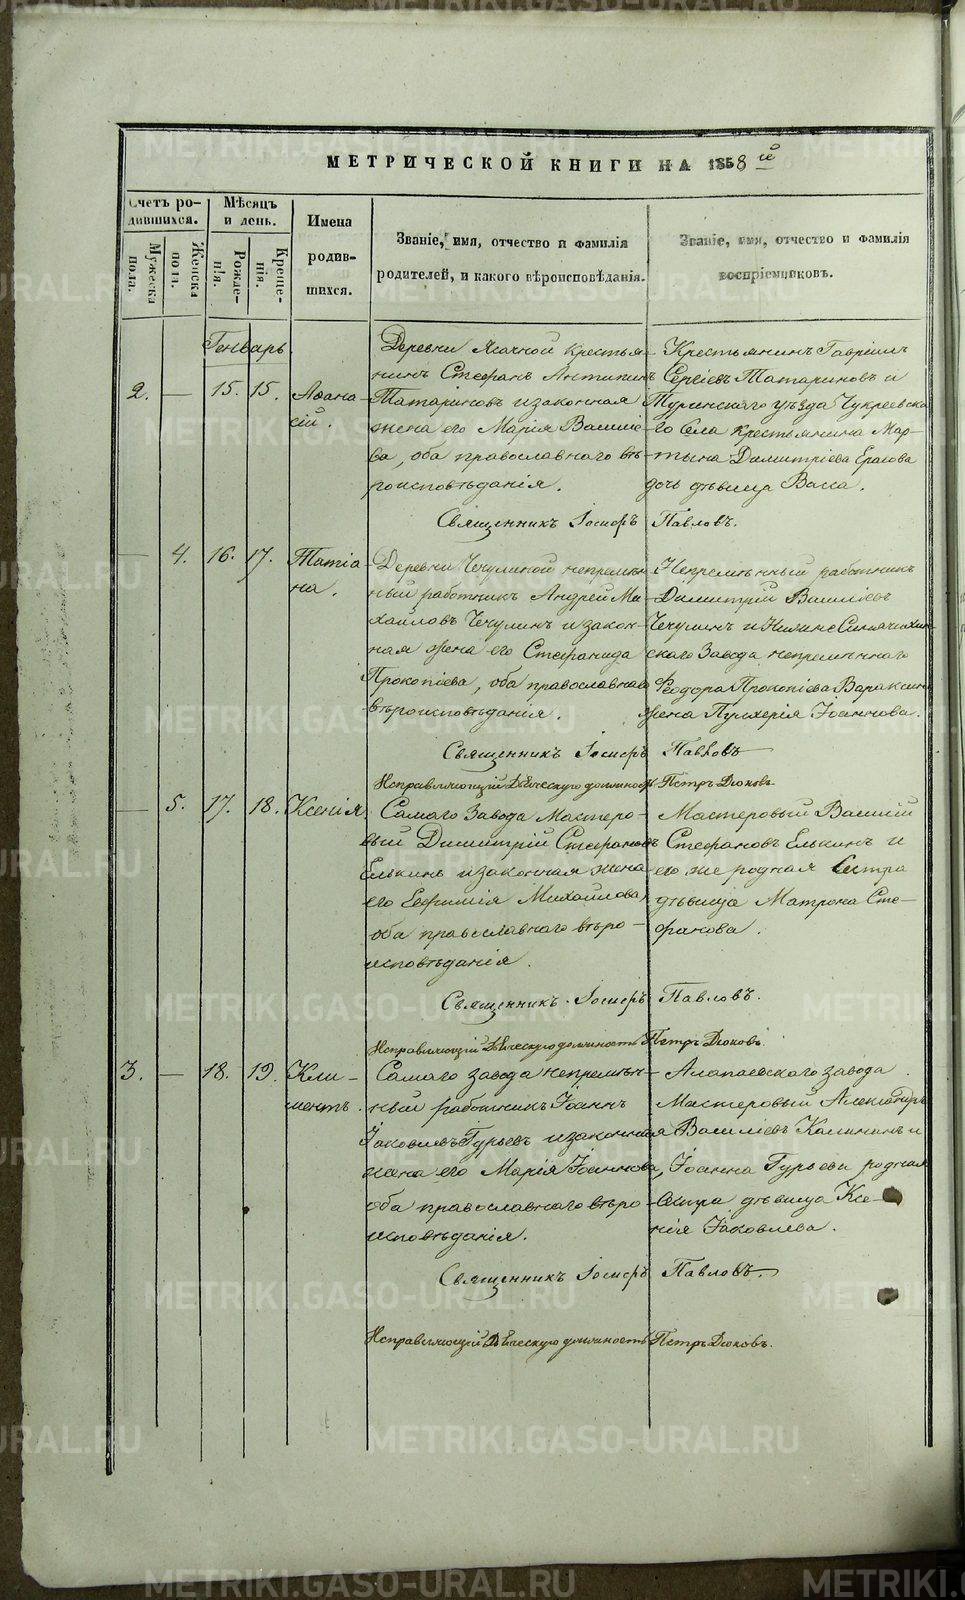 МЕТРИЧЕСКОЙ КНИГИ НА 1858 й
Счетъ родившихся.
Мужеска пола.
Женска пола.
Мѣсяцъ и день.
Рожденія.
Крещенія.
Имена родившихся.
Званіе, имя, отчество и фамилія
родителей, и какого вѣроисповѣданія.
Званіе, имя, отчество и фамилія
воспріемниковъ.
Генварь.
2. — 15. 15. Аѳана-
сій.
Деревни Ясачной крестья-
нинъ Стефанъ Антипинъ
Татариновъ и законная
жена его Марія Василіе-
ва, оба православнаго вѣ-
роисповѣданія.
Крестьянинъ Гавріилъ
Сергіевъ Татариновъ и
Туринскаго уѣзда Чукреевска-
го Села крестьянина Мар-
тына Димитріева
дочь дѣвица Васса.
Священникъ Іосифъ Павловъ.
— 4. 16. 17. Татіа-
на.
Деревни Чечулиной непремѣн-
ный работникъ Андрей Ми-
хаиловъ Чечулинъ и закон-
ная жена его Стефанида
Прокопіева, оба православнаго
вѣроисповѣданія.
Непремѣнный работникъ
Димитрій Василіевъ
Чечулинъ и Нижне Синячихин-
скаго Завода непремѣннаго
Ѳеодора Прокопіева Вараксина
жена Пулхерія Іоаннова.
Священникъ Іосифъ Павловъ
Исправляющій Дьяческую должность Петръ Дюковъ
— 5. 17. 18. Ксенія
Самаго Завода Мастеро-
вый Димитрій Стефановъ
Елькинъ и законная жена
его Евфимія Михайлова,
оба православнаго вѣро-
исповѣданія.
Мастеровый Василій
Стефановъ Елькинъ и
его же родная Сестра
дѣвица Матрона Сте-
фанова.
Священникъ Іосифъ Павловъ.
Исправляющій Дьяческую должность Петръ Дюковъ.
3. — 18. 19. Кли-
ментъ.
Самаго завода непремѣн-
ный работникъ Іоаннъ
Іаковлевъ Гурьевъ и законная
жена его Марія Іоаннова,
оба православнаго вѣро-
исповѣданія.
Алапаевскаго завода
Мастеровый Александръ
Василіевъ Калининъ и
Іоанна Гурьева родная
Сестра дѣвица Ксе-
нія Іаковлева.
Священникъ Іосифъ Павловъ.
Исправляющій Дьяческую должность Петръ Дюковъ.
METRIKI.GASO-URAL.RU